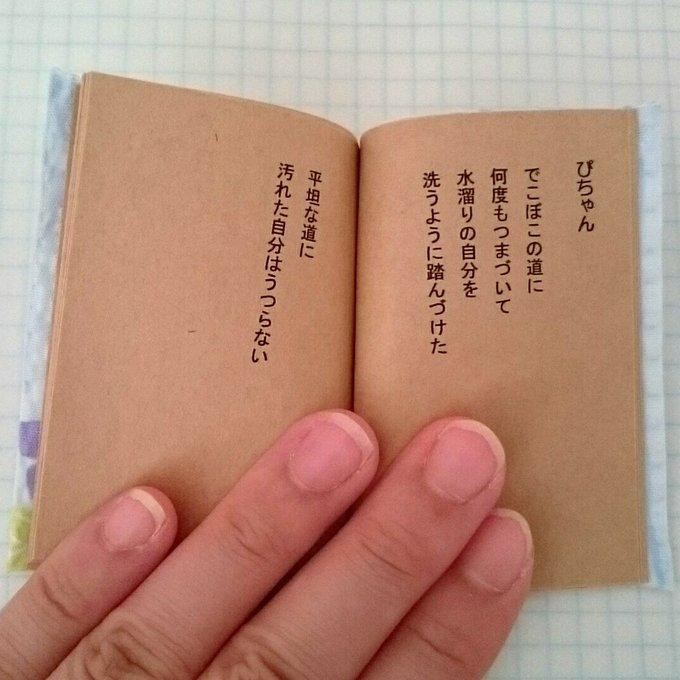 ぴちゃん
でこぼこの道に
何度もつまづいて
水溜りの自分を
洗うように踏んづけた
平坦な道に
汚れた自分はうつらない